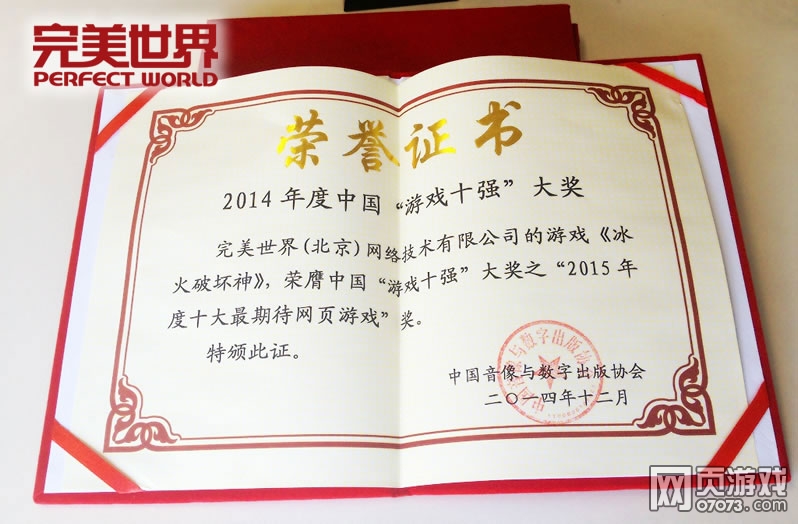 完美世界
PERFECT WORLD
荣誉证书
2014 年度中国“游戏十强”大奖
完美世界(北京)网络技术有限公司的游戏《冰
火破坏神》，荣膺中国“游戏十强”大奖之“2015 年
度十大最期待网页游戏”奖。
特颁此证。
中国音像与数字出版协会
二〇一四年十二月
网页游戏
07073.com